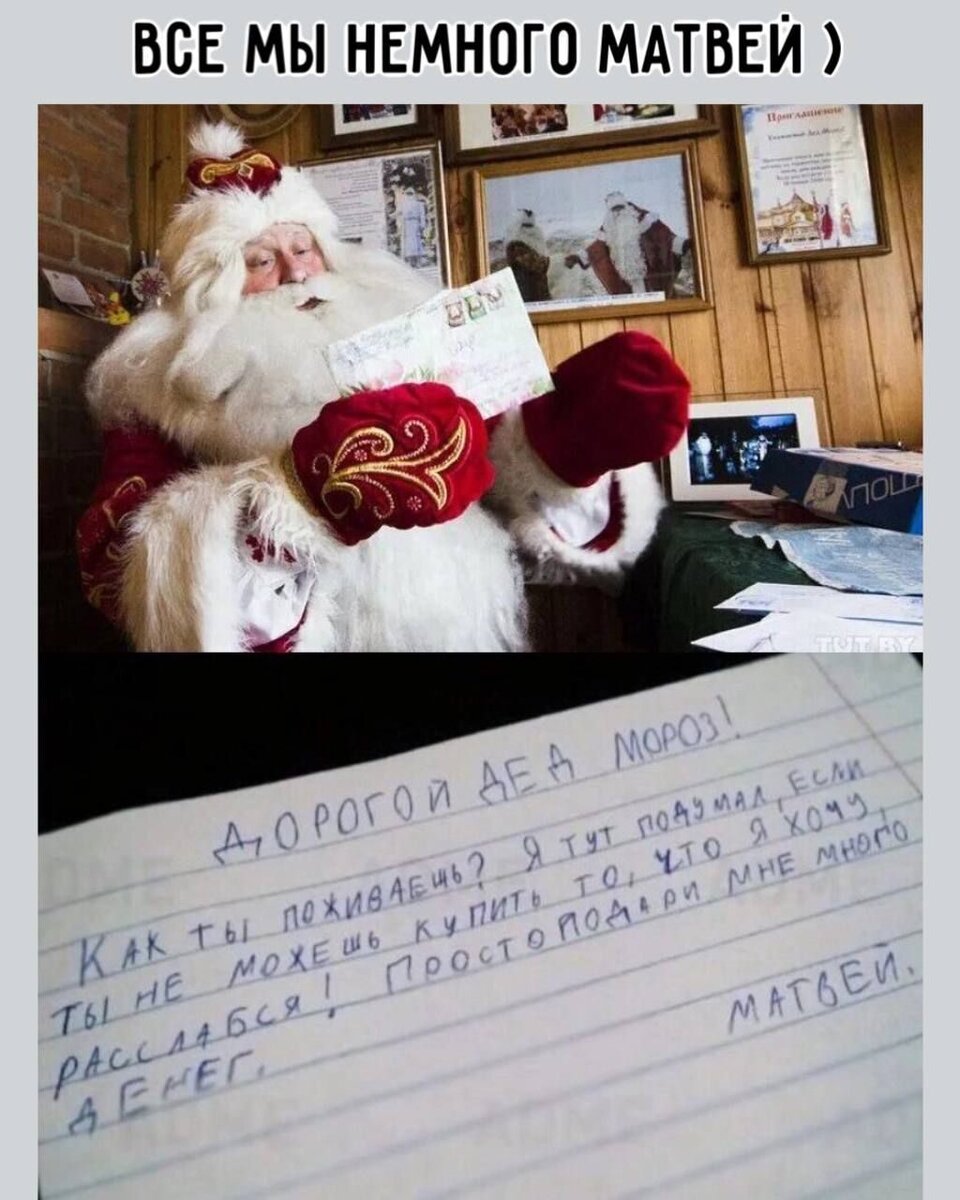 ВСЕ МЫ НЕМНОГО МАТВЕЙ )
Приглашение
TUT.BY
ДОРОГОЙ ДЕД МОРОЗ!
КАК ТЫ ПОЖИВАЕШЬ? Я ТУТ ПОДУМАЛ, ЕСЛИ
ТЫ НЕ МОЖЕШЬ КУПИТЬ ТО, ЧТО Я ХОЧУ,
РАССЛАБСЯ! ПРОСТО ПОДАРИ МНЕ МНОГО
ДЕНЕГ.
МАТВЕЙ.